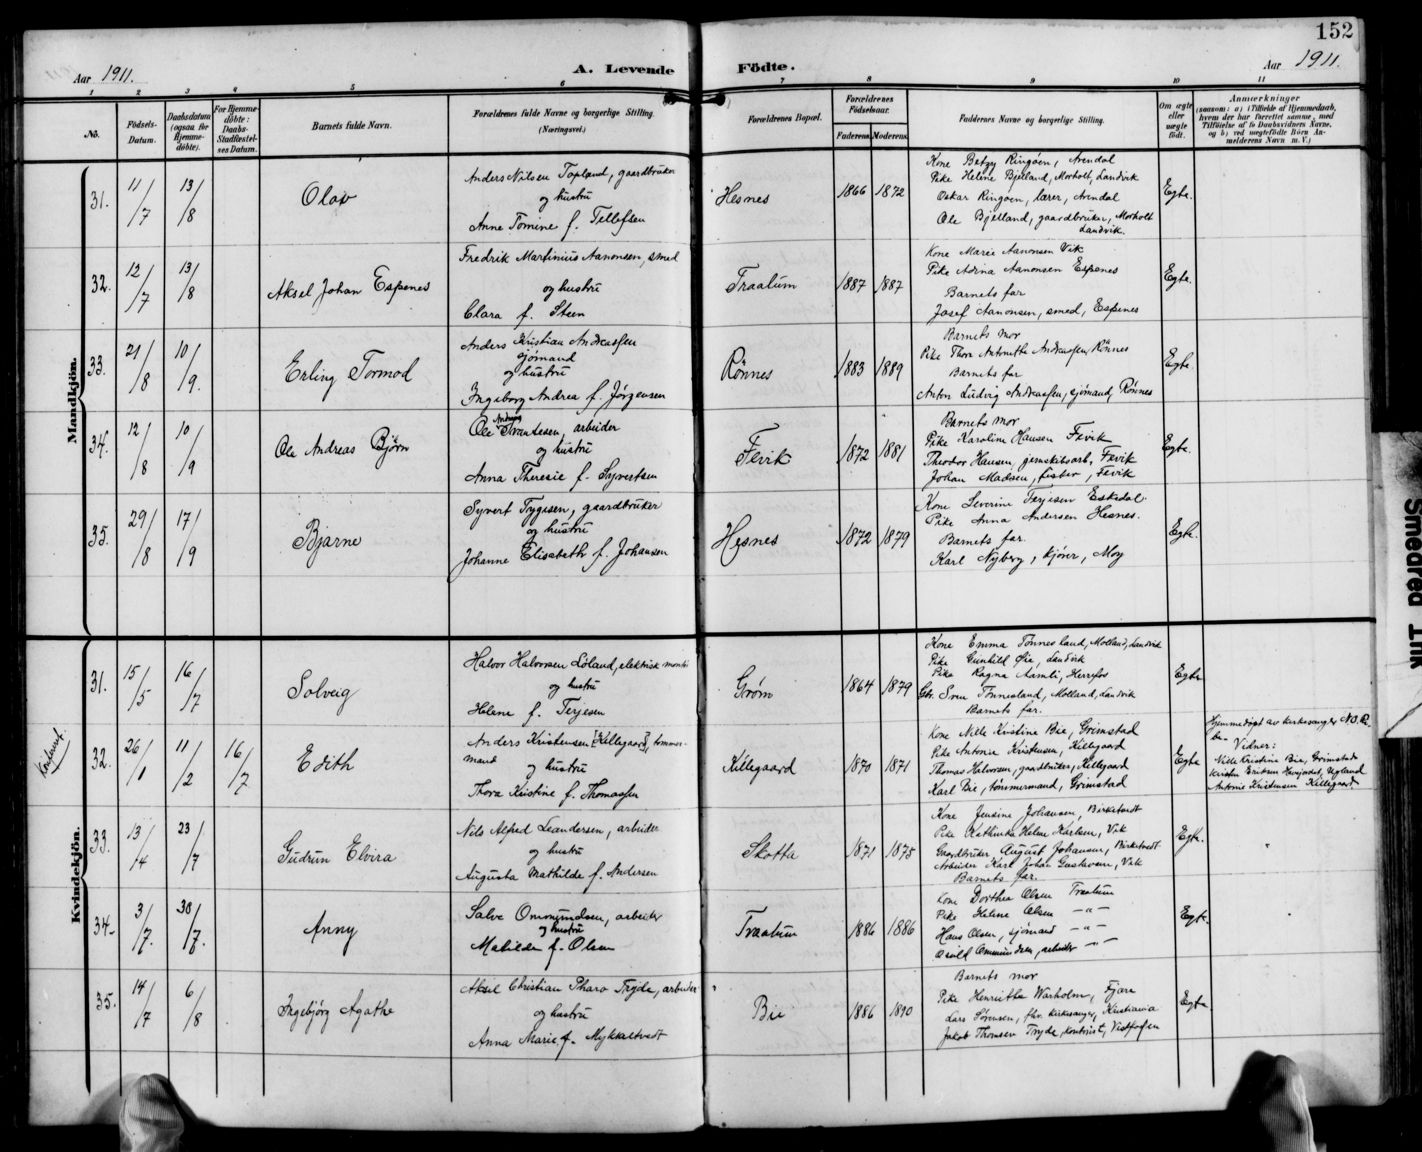 152
Aar 1911.
A. Levende Födte.
Aar 1911.
1 2 3 4 5 6 7 8 9 10 11
No.
Födsels-Datum.
Daabsdatum (ogsaa for Hjemme-döbte).
For Hjemme-döbte: Daabs-Stadfæstel-ses Datum.
Barnets fulde Navn.
Forældrenes fulde Navne og borgerlige Stilling. (Næringsvei.)
Forældrenes Bopæl.
Forældrenes Födselsaar.
Faderens. Moderens.
Faddernes Navne og borgerlige Stilling.
Om ægte eller uægte födt.
Anmærkninger
(saasom: a) i Tilfælde af Hjemmedaab, hvem der har forrettet samme, med Tilföielse af to Daabsvidners Navne, og b) ved uegtefödte Börn An-melderens Navn m. V.)
Mandkjön.
31. 11/7 13/8 Olav
Anders Nilsen Topland, gaardbruker
og hustru
Anne Tomine f. Tellefsen
Hesnes 1866 1872
Kone Betzy Ringöen, Arendal
Pike Helene Bjelland, Morholt, Landvik
Oskar Ringöen, lærer, Arendal
Ole Bjelland, gaardbruker, Morholt
Landvik.
Egte.
32. 12/7 13/8 Aksel Johan Espenes
Fredrik Martinius Aanonsen, smed
og hustru
Clara f. Steen
Traalum 1887 1887
Kone Marie Aanonsen Vik
Pike Adna Aanonsen Espenes
Barnets far
Josef Aanonsen, smed, Espenes
Egte.
33. 21/8 10/9. Erling Tormod
Anders Kristian Andreassen
sjömand
og hustru
Ingeborg Andrea f. Jörgensen
Rönnes 1883 1889
Barnets mor
Pike Thora Antonette Andreassen, Rönnes
Barnets far
Anton Ludvig Andreassen, sjömand, Rönnes
Egte.
34. 12/8 10/9 Ole Andreas Björn
Ole Andreas, arbeider
og hustru
Anna Theresie f. Syvertsen
Fevik 1872 1881
Barnets mor
Pike Karoline Hansen Fevik
Theodor Hansen, jernskibsarb., Fevik
Johan Madsen, fisker, Fevik
Egte.
35. 29/8 17/9 Bjarne
Syvert Trygesen, gaardbruker
og hustru
Johanne Elisabeth f. Johansen
Hesnes 1872 1879
Kone Severine Terjesen Eskedal
Pike Anna Andersen Hesnes.
Barnets far.
Karl Nyberg, kjörer, Moy
Egte.
Kvindekjön.
31. 15/5 16/7 Solveig
Halvor Halvorsen Löland, elektrisk montör
og hustru
Helene f. Terjesen
Gröm 1864 1879
Kone Emma Tönnesland, Molland, Landvik
Pike Gunhild Öie, Landvik
Pike Ragna Aamli, Herefos
Gbr. Sven Tönnesland, Molland, Landvik
Barnets far.
Egte
Konferert.
32. 26/1 11/2 16/7 Edith
Anders Kristensen [Killegaard], tömmer-
mand
og hustru
Thora Kristine f. Thomassen
Killegaard 1870 1871
Kone Nille Kristine Bie, Grimstad
Pike Antonie Kristensen, Killegaard
Thomas Halvorsen, gaardbruker, Killegaard
Karl Bie, tömmermand, Grimstad
Egte
Hjemmedöpt av kirkesanger N.O.
Vidner:
Nille Kristine Bie, Grimstad
Kirsten Eriksen, Ugland
Antonie Kristensen Killegaard
33. 13/4 23/7 Gudrun Elvira
Nils Alfred Leandersen, arbeider
og hustru
Augusta Mathilde f. Andersen
Skotta 1871 1875
Kone Jensine Johansen, Birketvedt
Pike Kathinka Helene Karlsen, Vik
Gaardbruker August Johansen, Birketvedt
Arbeider Karl Johan Gustavsen, Vik
Barnets far.
Egte.
34. 3/7. 30/7. Anny
Salve Ommundsen, arbeider
og hustru
Mathilde f. Olsen
Traalum 1886 1886
Kone Dorthea Olsen Traalum
Pike Helene Olsen — " —
Hans Olsen, sjömand — " —
Osvald Ommundsen, arbeider — " —
Egte.
35. 14/7 6/8 Ingebjörg Agathe
Aksel Christian Pharo Tryde, arbeider
og hustru
Anna Marie f. Mykkeltvedt
Bie 1886 1890
Barnets mor
Pike Henriette Warholm, Fjære
Lars Sörensen, fhv. kirkesanger, Kristiania
Jakob Thomsen Tryde, kontrist, Vestfossen
Egte
Smeared Ink